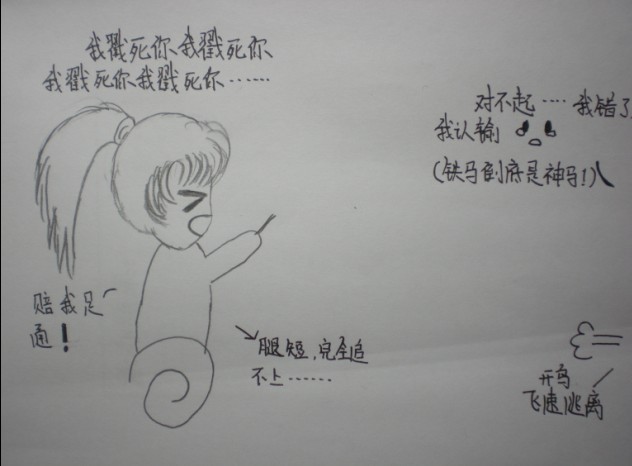 我戳死你、我戳死你、
我戳死你、我戳死你……
对不起……我错了
我认输
(铁马到底是神马!)
赔我足
通!
腿短,完全追
不上……
开鸟
飞速逃离